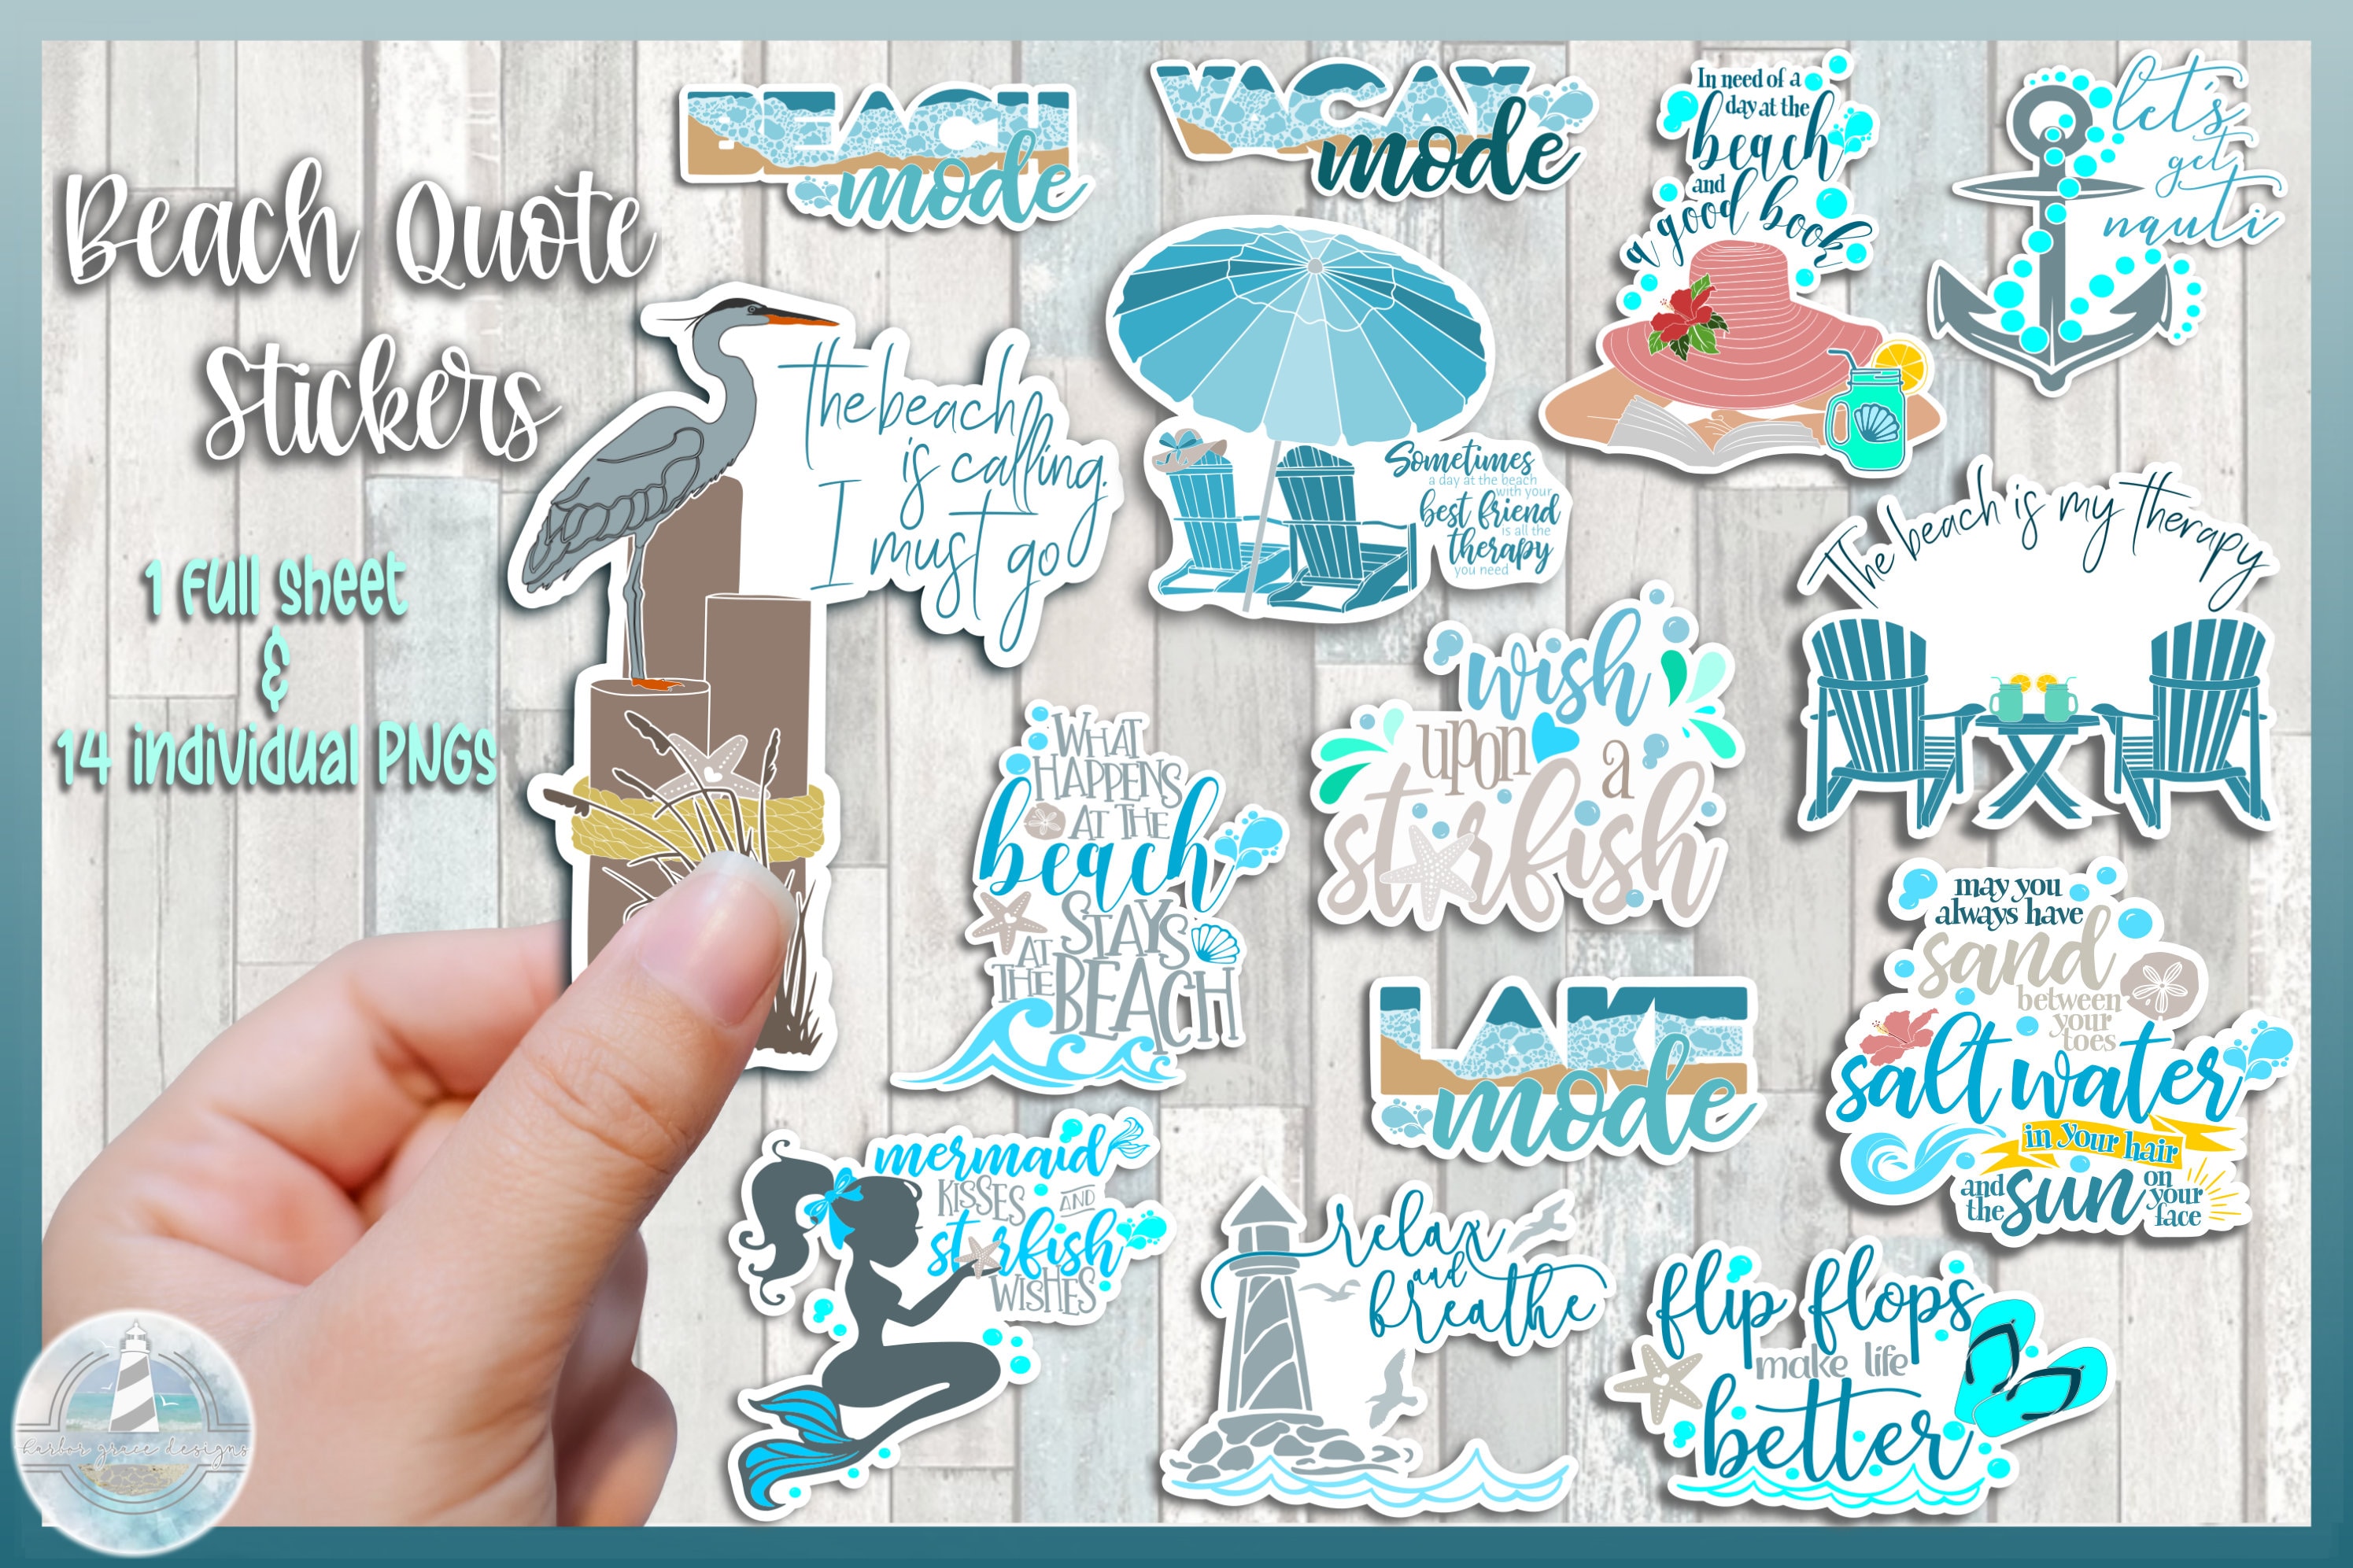 Beach Quote
Stickers
1 Full Sheet
&
14 individual PNGs
BEACH
mode
VACAY
mode
In need of a
day at the
beach
and
a good book
let's
get
nauti
the beach
is calling.
I must go
Sometimes
a day at the beach
with your
best friend
is all the
therapy
you need
The beach is my therapy
wish
upon a
starfish
WHAT
HAPPENS
AT THE
beach
STAYS
AT
THE
BEACH
may you
always have
sand
between
your
toes
salt water
in your hair
and
the
sun
on
your
face
LAKE
mode
mermaid
KISSES AND
starfish
WISHES
relax
and
breathe
flip flops
make life
better
harbor grace designs